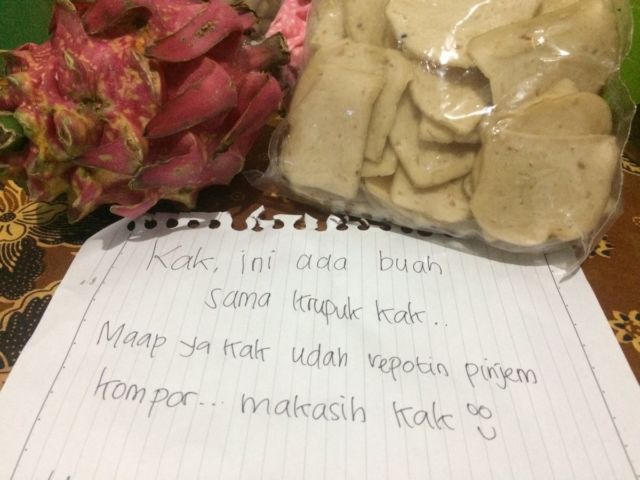 Kak, ini ada buah
sama krupuk kak..
Maap ya kak udah repotin pinjem
kompor... makasih kak